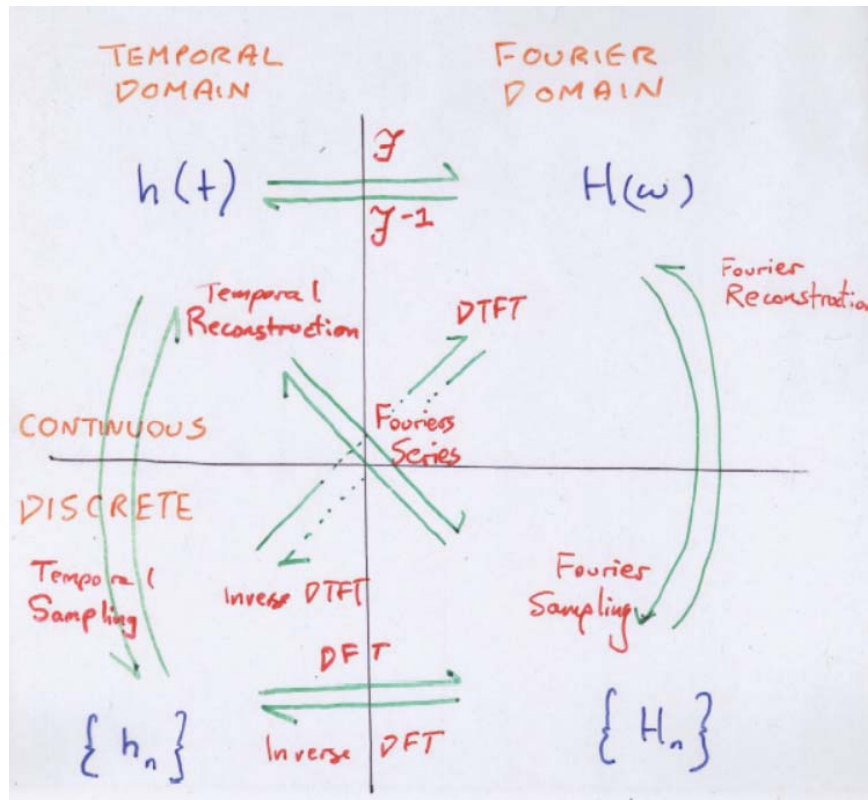 TEMPORAL
DOMAIN
FOURIER
DOMAIN
ℱ
h(t)
H(ω)
ℱ-1
Temporal
Reconstruction
DTFT
Fourier
Reconstruction
Fouriers
Series
CONTINUOUS
DISCRETE
Temporal
Sampling
Inverse DTFT
Fourier
Sampling
DFT
{hn}
{Hn}
Inverse DFT